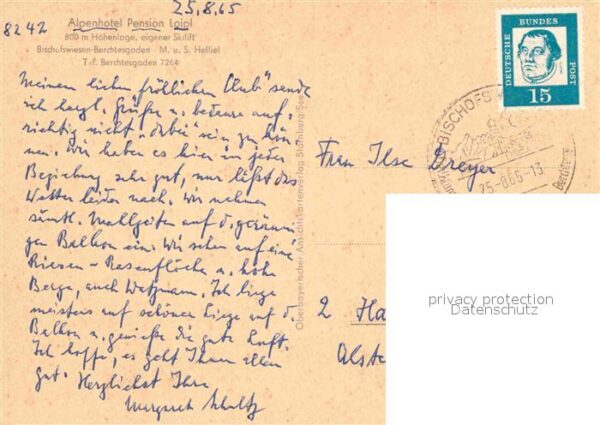 25.8.65
8242
Alpenhotel Pension Loipl
800 m Höhenlage, eigener Skilift
Bischofswiesen-Berchtesgaden · M. u. S. Helliel
Tel. Berchtesgaden 7264
Meinem lieben fröhlichen Club" sende
ich herzl. Grüße u. bedaure auf-
richtig nicht dabei sein zu kön-
nen. Wir haben es hier in jeder
Beziehung sehr gut, nur läßt das
Wetter leider nach. Wir nehmen
sämtl. Mahlzeiten auf d. geräumi-
gen Balkon ein. Wir sehen auf eine
Riesen-Rasenfläche u. hohe
Berge, auch Watzmann. Ich liege
meistens auf schöner Liege auf d.
Balkon u. genieße die gute Luft.
Ich hoffe, es geht Ihnen allen
gut. Herzlichst Ihre
Margaret Schultz
Oberbayerischer Ansichtskartenverlag Starnberg See
DEUTSCHE BUNDES POST
15
BISCHOFS
25-8.65-13
Frau Ilse Dreyer
2 Ha
Alste
privacy protection
Datenschutz